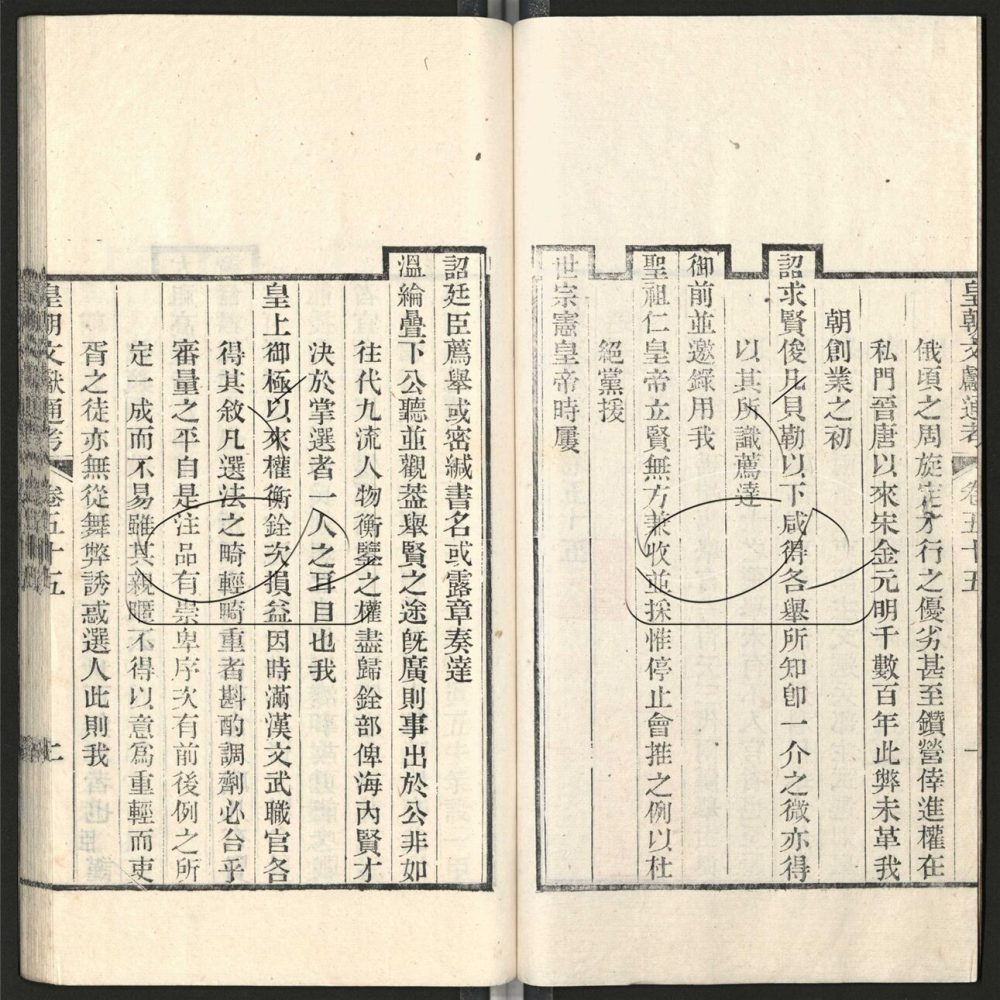 皇朝文獻通考 卷五十五 一
俄頃之周旋定才行之優劣甚至鑽營倖進權在
私門晉唐以來宋金元明千數百年此弊未革我
朝創業之初
詔求賢俊凡貝勒以下咸得各舉所知卽一介之微亦得
以其所識薦達
御前並邀錄用我
聖祖仁皇帝立賢無方兼收並採惟停止會推之例以杜
絕黨援
世宗憲皇帝時屢
詔廷臣薦舉或密緘書名或露章奏達
溫綸疊下公聽並觀葢舉賢之途旣廣則事出於公非如
往代九流人物衡鑒之權盡歸銓部俾海內賢才
決於掌選者一人之耳目也我
皇上御極以來權衡銓次損益因時滿漢文武職官各
得其敘凡選法之畸輕畸重者斟酌調劑必合乎
審量之平自是注品有崇卑序次有前後例之所
定一成而不易雖其親暱不得以意爲重輕而吏
胥之徒亦無從舞弊誘惑選人此則我
皇朝文獻通考 卷五十五 二